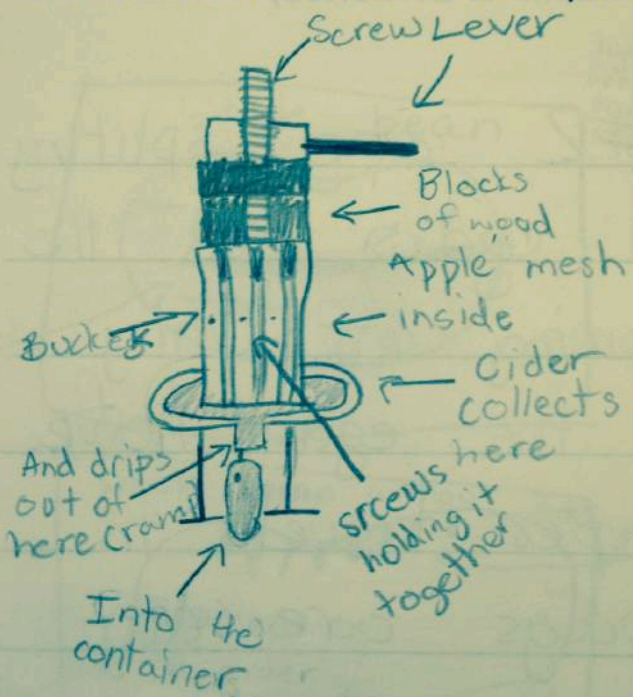 Screw Lever
Blocks
of wood
Apple mesh
inside
Bucket
Cider
collects
here
And drips
out of
here (ramp)
srcews
holding it
together
Into the
container